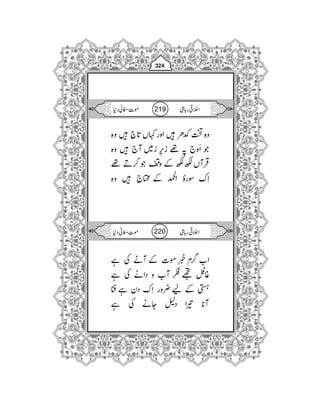 324
اخلاقی رباعی 219 موت-فانی دنیا
وہ تخت کدھر ہیں اور کہاں تاج ہیں وہ
جو اَوج پہ تھے زیرِ زمیں آج ہیں وہ
قرآں لکھ لکھ کے وقف جو کرتے تھے
اِک سورۂ الحمد کے محتاج ہیں وہ
اخلاقی رباعی 220 موت-فانی دنیا
اب گرم خبر موت کے آنے کی ہے
غافل تجھے فکر آب و دانے کی ہے
ہستی کے لیے ضرور اِک دن ہے فنا
آنا تیرا دلیل جانے کی ہے